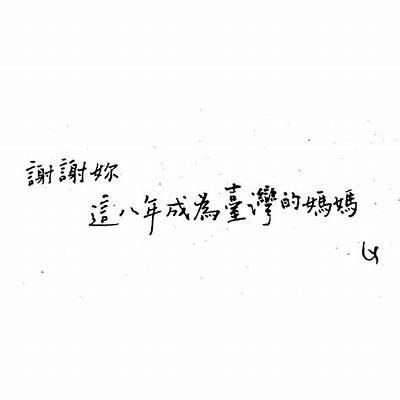 謝謝妳
這八年成為臺灣的媽媽